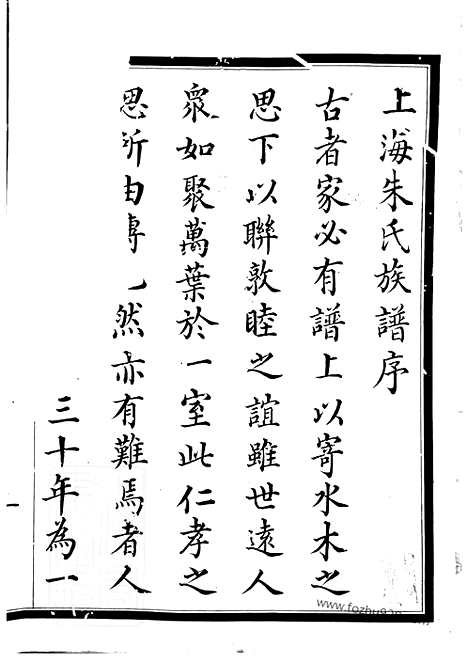 上海朱氏族譜序
古者家必有譜上以寄水木之
思下以聯敦睦之誼雖世遠人
衆如聚萬葉於一室此仁孝之
思所由專也然亦有難焉者人
三十年為一
一
www.fozhu920